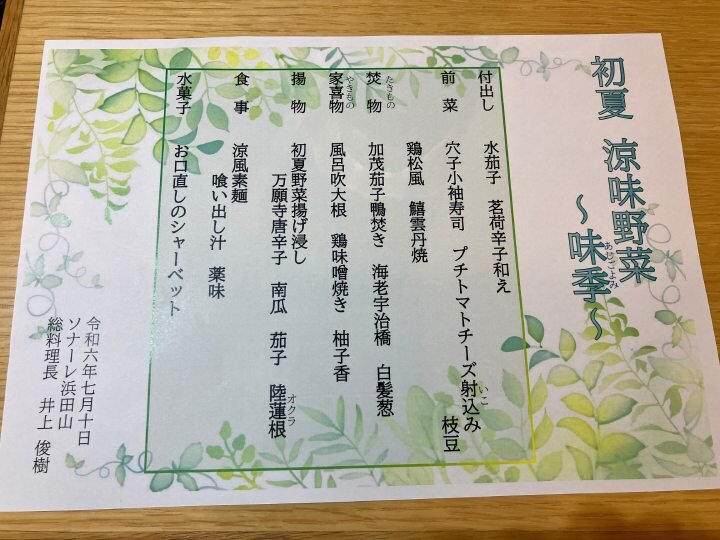 初夏 涼味野菜
～味季～
あじごよみ
付出し 水茄子 茗荷辛子和え
前菜 穴子小袖寿司 プチトマトチーズ射込み 枝豆
いこ
鶏松風 鱚雲丹焼
焚物 加茂茄子鴨焚き 海老宇治橋 白髪葱
たきもの
家喜物 風呂吹大根 鶏味噌焼き 柚子香
やきもの
揚物 初夏野菜揚げ浸し
万願寺唐辛子 南瓜 茄子 陸蓮根
オクラ
食事 涼風素麺
喰い出し汁 薬味
水菓子 お口直しのシャーベット
令和六年七月十日
ソナーレ浜田山
総料理長 井上 俊樹